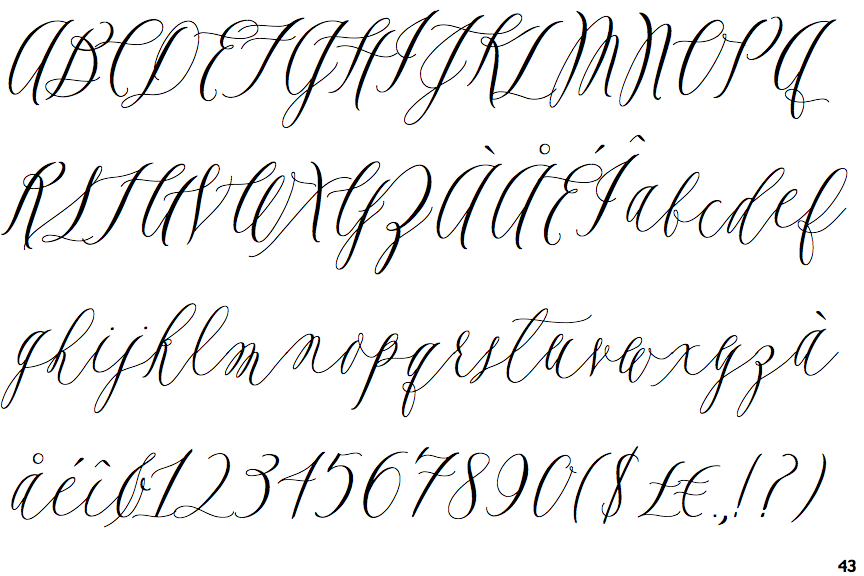 ABCDEFGHIJKLMNOPQ
RSTUVWXYZÀÅÉÎabcdef
ghijklmnopqrstuvwxyzà
åéîø1234567890($£€.,!?)
43